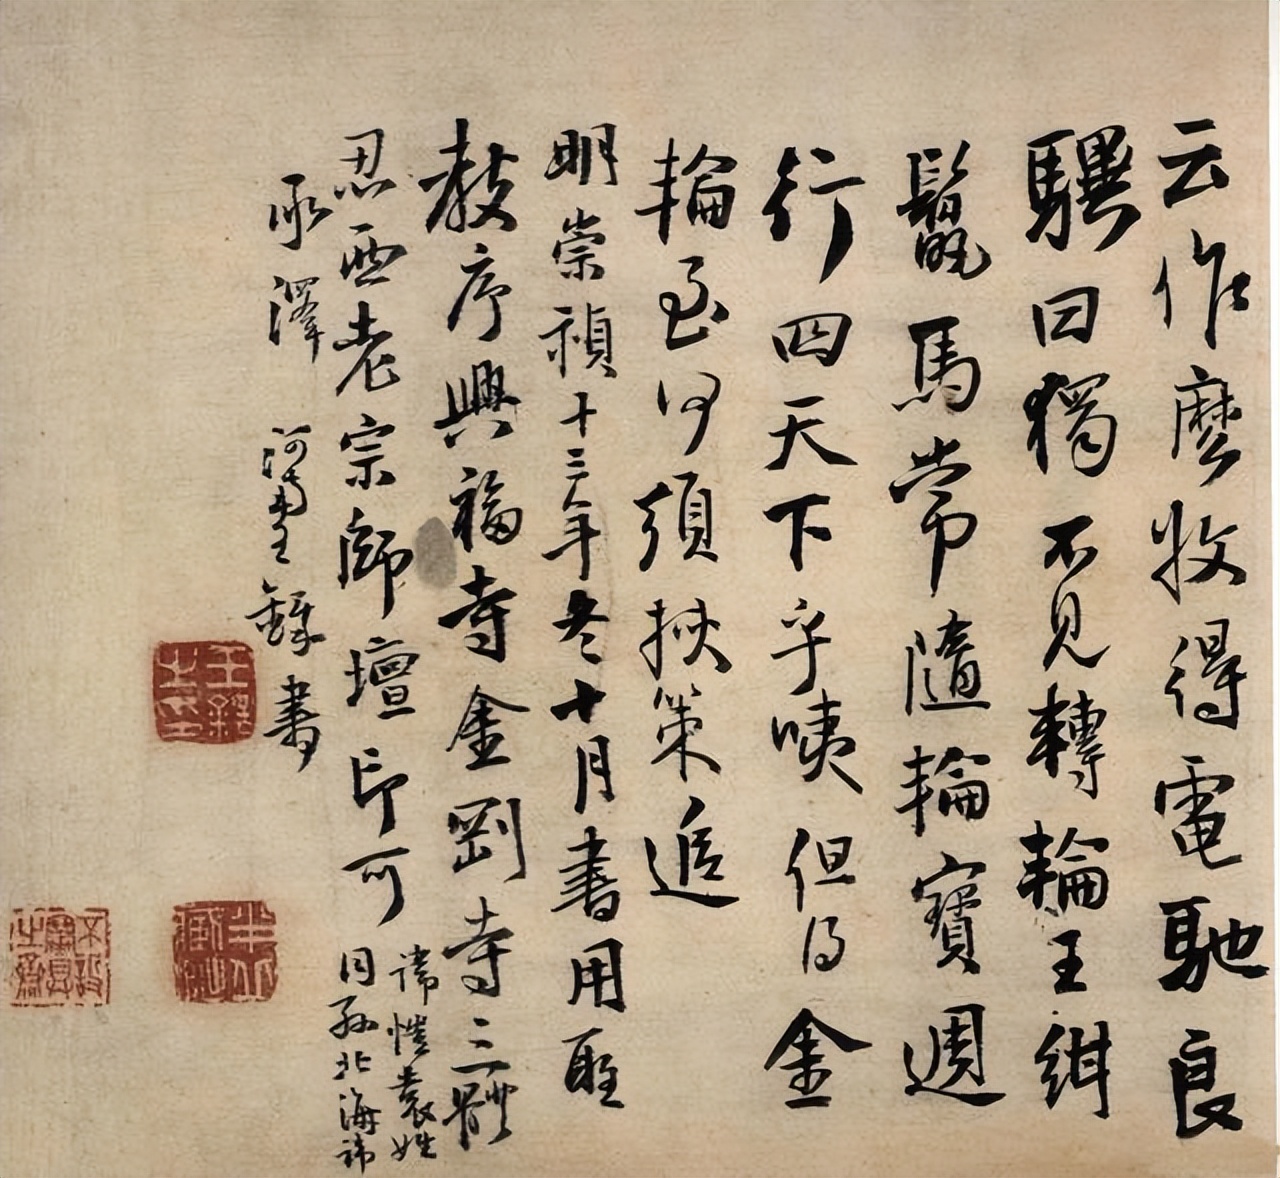 云作麽牧得電馳良
驥曰獨不見轉輪王紺
鬣馬常隨輪寶週
行四天下乎咦但得金
輪至何須挾策追
明崇禎十三年冬十月書用聖
教序興福寺金剛寺三體
忍西老宗師壇印可
諱愷袁姓
同孫北海諱
承澤 河南王鐸書